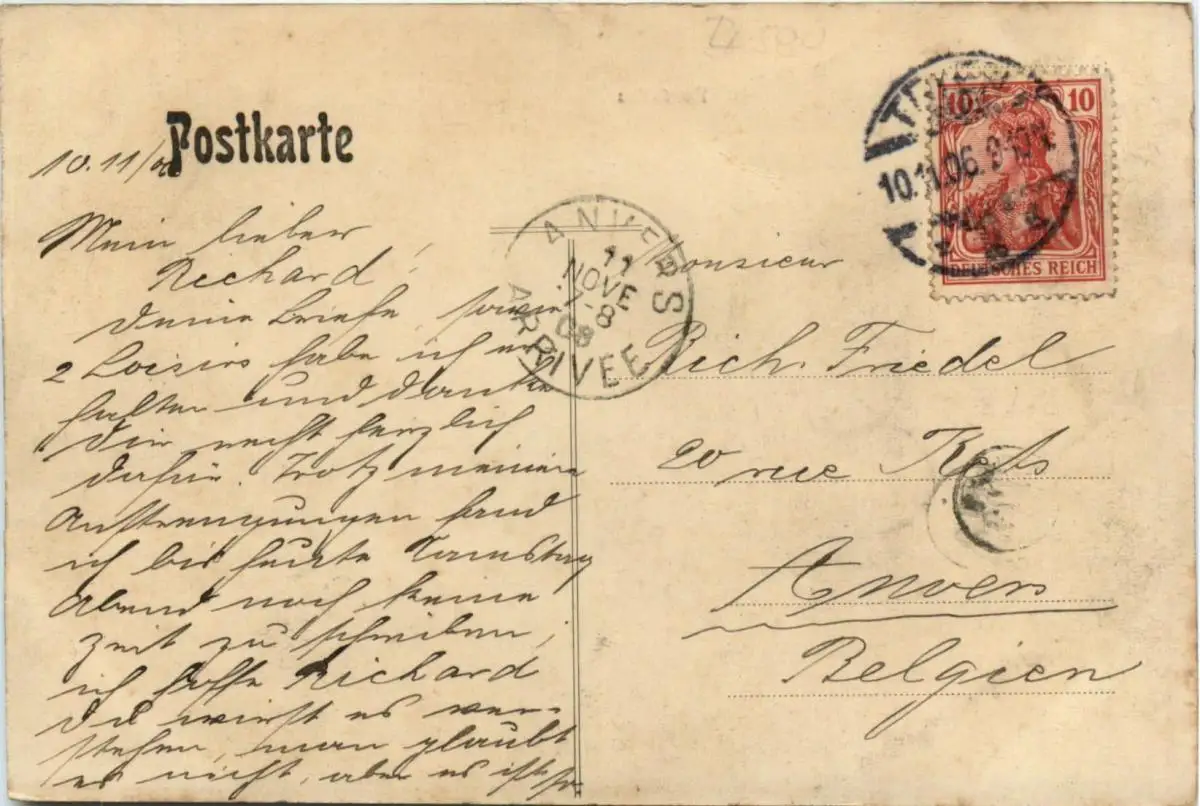 Postkarte
10.11/06
Mein lieber
Richard!
Deine Briefe, sowie
2 Loisirs habe ich er-
halten und danke
Dir recht herzlich
dafür. Trotz meiner
Anstrengungen fand
ich bis heute Samstag
Abend noch keine
Zeit zu schreiben,
ich hoffe Richard
Du wirst es ver-
stehen, man glaubt
es nicht, aber es ist so.
ANVERS
11
NOVE
7-8
ARRIVEE
10
10
10.11.06.
DEUTSCHES REICH
Monsieur
Rich. Friedel
20 rue
Anvers
Belgien